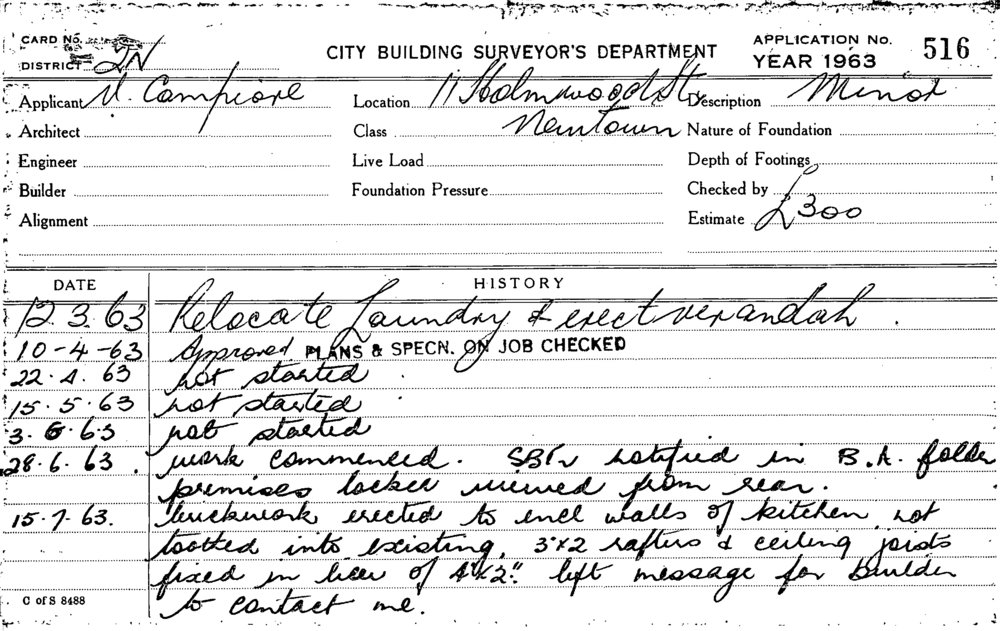 CARD No.
DISTRICT 2N
CITY BUILDING SURVEYOR'S DEPARTMENT
APPLICATION No. 516
YEAR 1963
Applicant V. Campione
Location 11 Holmwood St
Description Minor
Architect
Class Newtown
Nature of Foundation
Engineer
Live Load
Depth of Footings
Builder
Foundation Pressure
Checked by
Alignment
Estimate £300
DATE HISTORY
12.3.63 Relocate Laundry & erect verandah.
10-4-63 Approved PLANS & SPECN. ON JOB CHECKED
22.4.63 not started
15.5.63 not started
3.6.63 not started
28.6.63. work commenced. notified in B.A. folder
premises locked viewed from rear.
15.7.63. brickwork erected to encl walls of kitchen not
toothed into existing, 3"x2 rafters & ceiling joists
fixed in lieu of 4"x2". left message for builder
to contact me.
C of S 8488